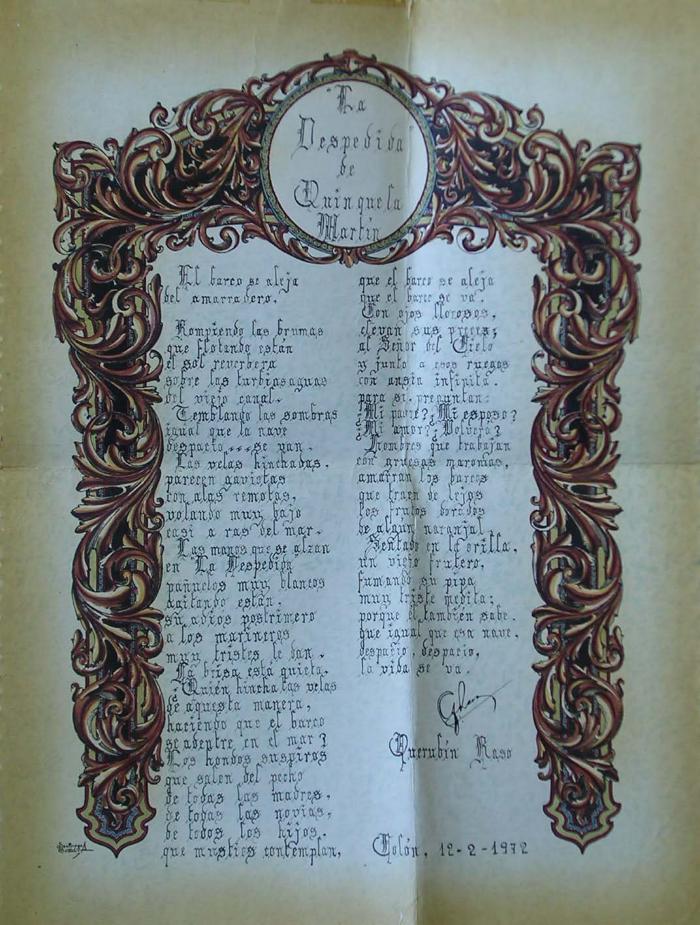 "La
Despedida"
de
Quinquela
Martín
El barco se aleja
del amarradero.
Rompiendo las brumas
que flotando están
el sol reverbera
sobre las turbias aguas
del viejo canal.
Temblando las sombras
igual que la nave
despacio....se van.
Las velas hinchadas,
parecen gaviotas
con alas remotas,
volando muy bajo
casi a ras del mar.
Las manos que se alzan
en "La Despedida
pañuelos muy blancos
agitando están.
su adios postrimero
a los marineros
muy tristes le dan.
La brisa está quieta.
¿Quién hincha las velas
de aquesta manera,
haciendo que el barco
se adentre en el mar?
Los hondos suspiros
que salen del pecho
de todas las madres,
de todas las novias,
de todos los hijos,
que mustios contemplan,
que el barco se aleja
que el barco se va.
Con ojos llorosos,
elevan sus preces;
al Señor del Cielo
y junto a esos ruegos
con ansia infinita.
para si, preguntan:
¿Mi padre?¿Mi esposo?
¿Mi amor? ¿Volverá?
Hombres que trabajan
con gruesas maromas,
amarran los barcos
que traen de lejos
los frutos dorados
de algún naranjal.
Sentado en la orilla,
un viejo frutero,
fumando su pipa
muy triste medita;
porque él también sabe.
que igual que esa nave,
despacio, despacio,
la vida se va.
Querubín Raso
Colón, 12-2-1972